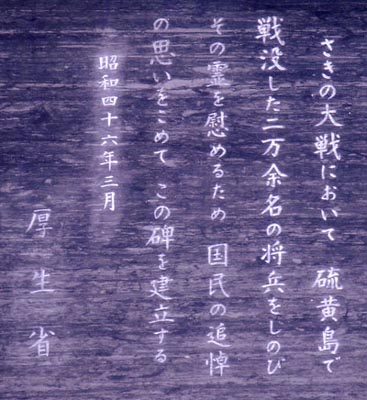 さきの大戦において 硫黄島で
戦没した二万余名の将兵をしのび
その霊を慰めるため 国民の追悼
の思いをこめて この碑を建立する
昭和四十六年三月
厚生省